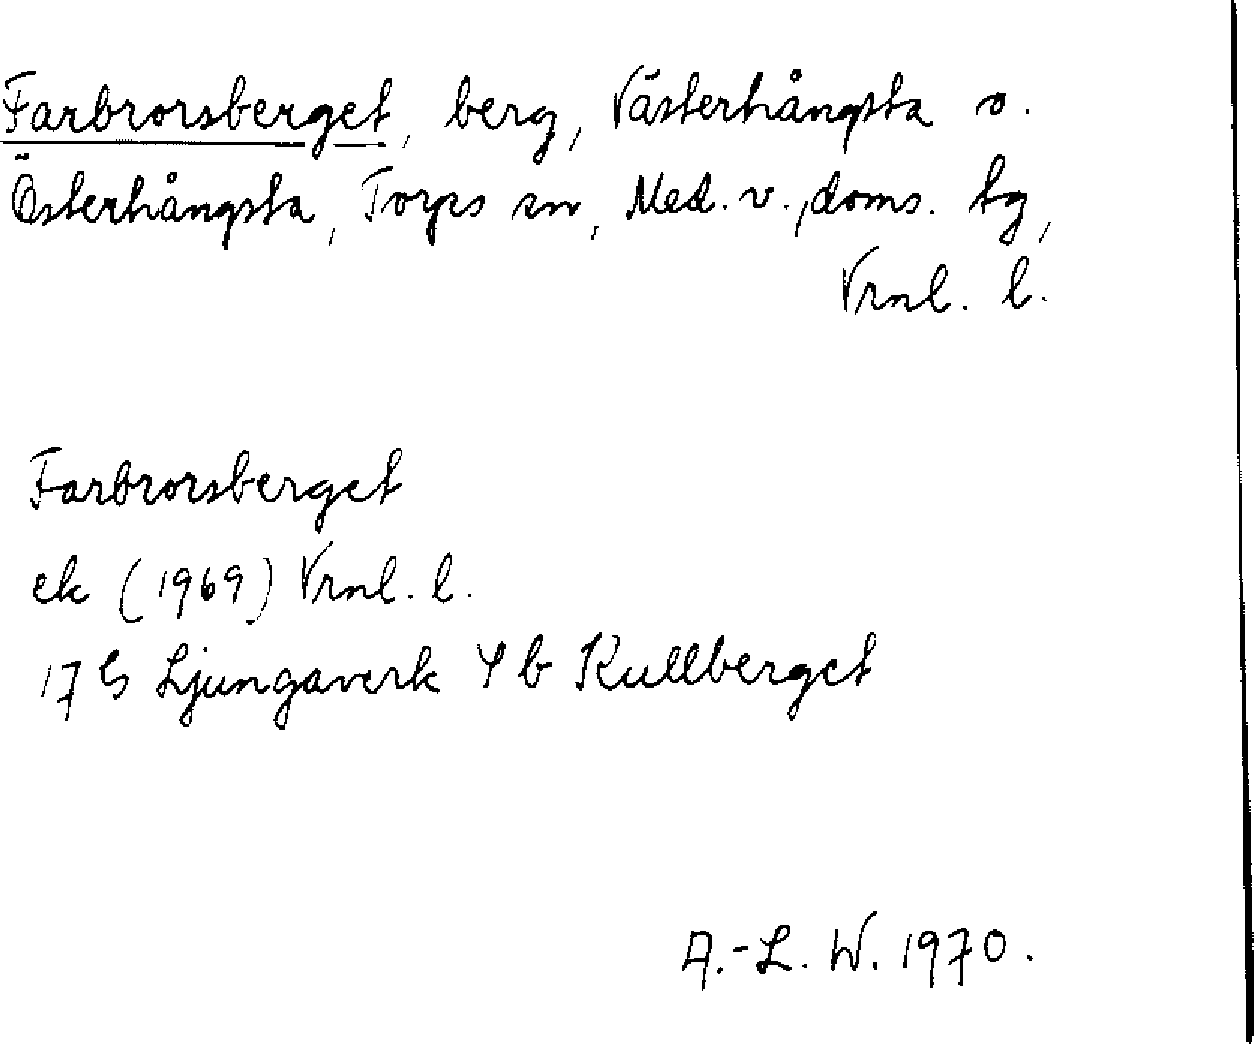 Farbrorsberget, berg, Västerhångsta o.
Österhångsta, Torps sn, Med. v., doms. tg,
Vrnl. l.
Farbrorsberget
ek (1969) Vrnl. l.
17 G Ljungaverk 4 b Kullberget
A.-L. W. 1970.